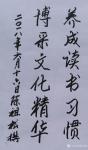 养成读书习惯
博采文化精华
二〇一八年八月十六日陈祖松撰